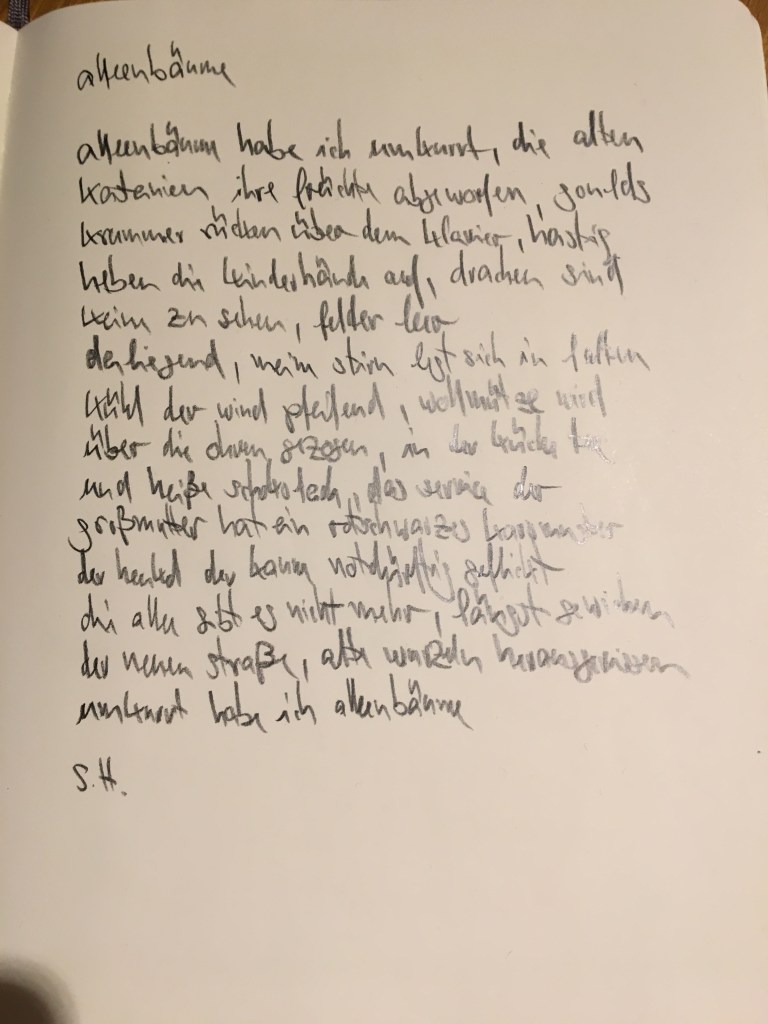 alleenbäume
alleenbäume habe ich umkurvt, die alten
kastanien ihre früchte abgeworfen, goulds
krummer rücken über dem klavier, hastig
heben die kinderhände auf, drachen sind
keine zu sehen, felder leer
daliegend, meine stirn legt sich in falten
kühl der wind pfeifend, wollmütze wird
über die ohren gezogen, in der küche tee
und heiße schokolade, das service der
großmutter hat ein rotschwarzes karomuster
der henkel der kanne notdürftig geflickt
die allee gibt es nicht mehr, längst gewichen
der neuen straße, alte wurzeln herausgerissen
umkurvt habe ich alleenbäume
S.H.